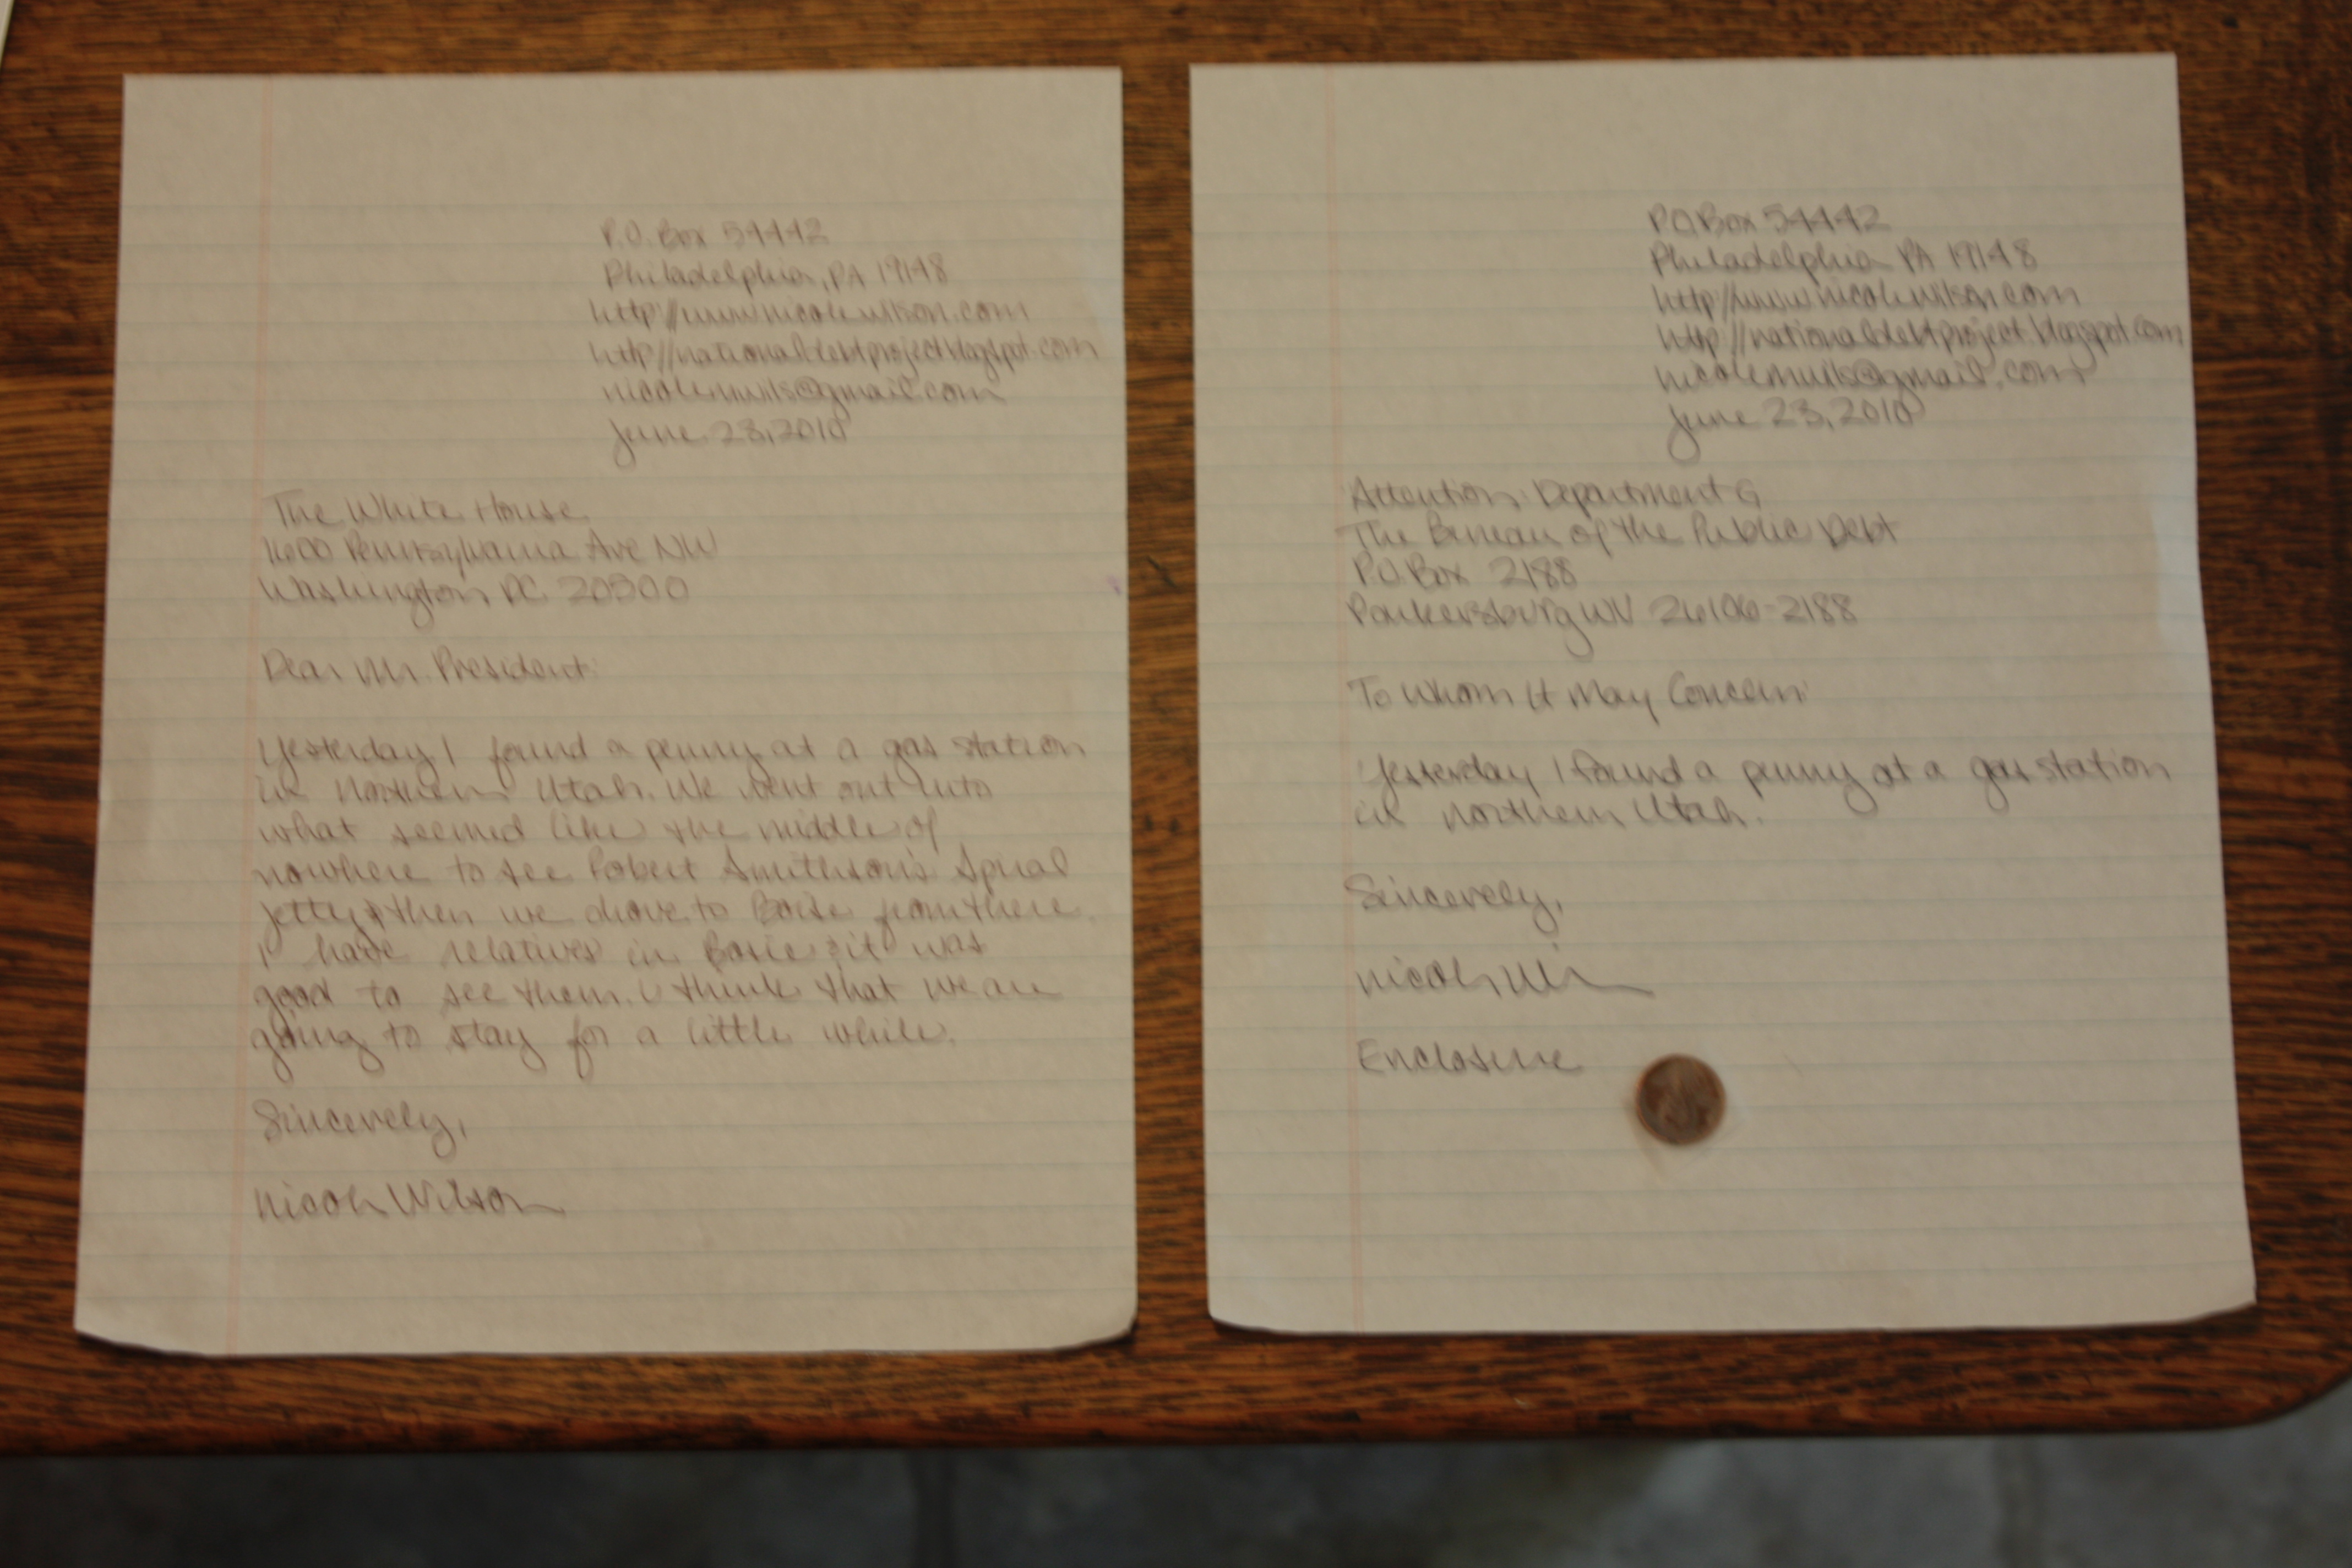 P.O. Box 54442
Philadelphia, PA 19148
http://www.nicolewilson.com
http://nationaldebtproject.blogspot.com
nicolemwils@gmail.com
June 23, 2010
The White House
1600 Pennsylvania Ave NW
Washington DC 20500
Dear Mr. President:
Yesterday I found a penny at a gas station
in northern Utah. We went out into
what seemed like the middle of
nowhere to see Robert Smithson's Spiral
Jetty & then we drove to Boise from there.
I have relatives in Boise & it was
good to see them. I think that we are
going to stay for a little while.
Sincerely,
Nicole Wilson
P.O. Box 54442
Philadelphia PA 19148
http://www.nicolewilson.com
http://nationaldebtproject.blogspot.com
nicolemwils@gmail.com
June 23, 2010
Attention: Department G
The Bureau of the Public Debt
P.O. Box 2188
Parkersburg WV 26106-2188
To Whom It May Concern:
Yesterday I found a penny at a gas station
in northern Utah.
Sincerely,
Nicole Wilson
Enclosure